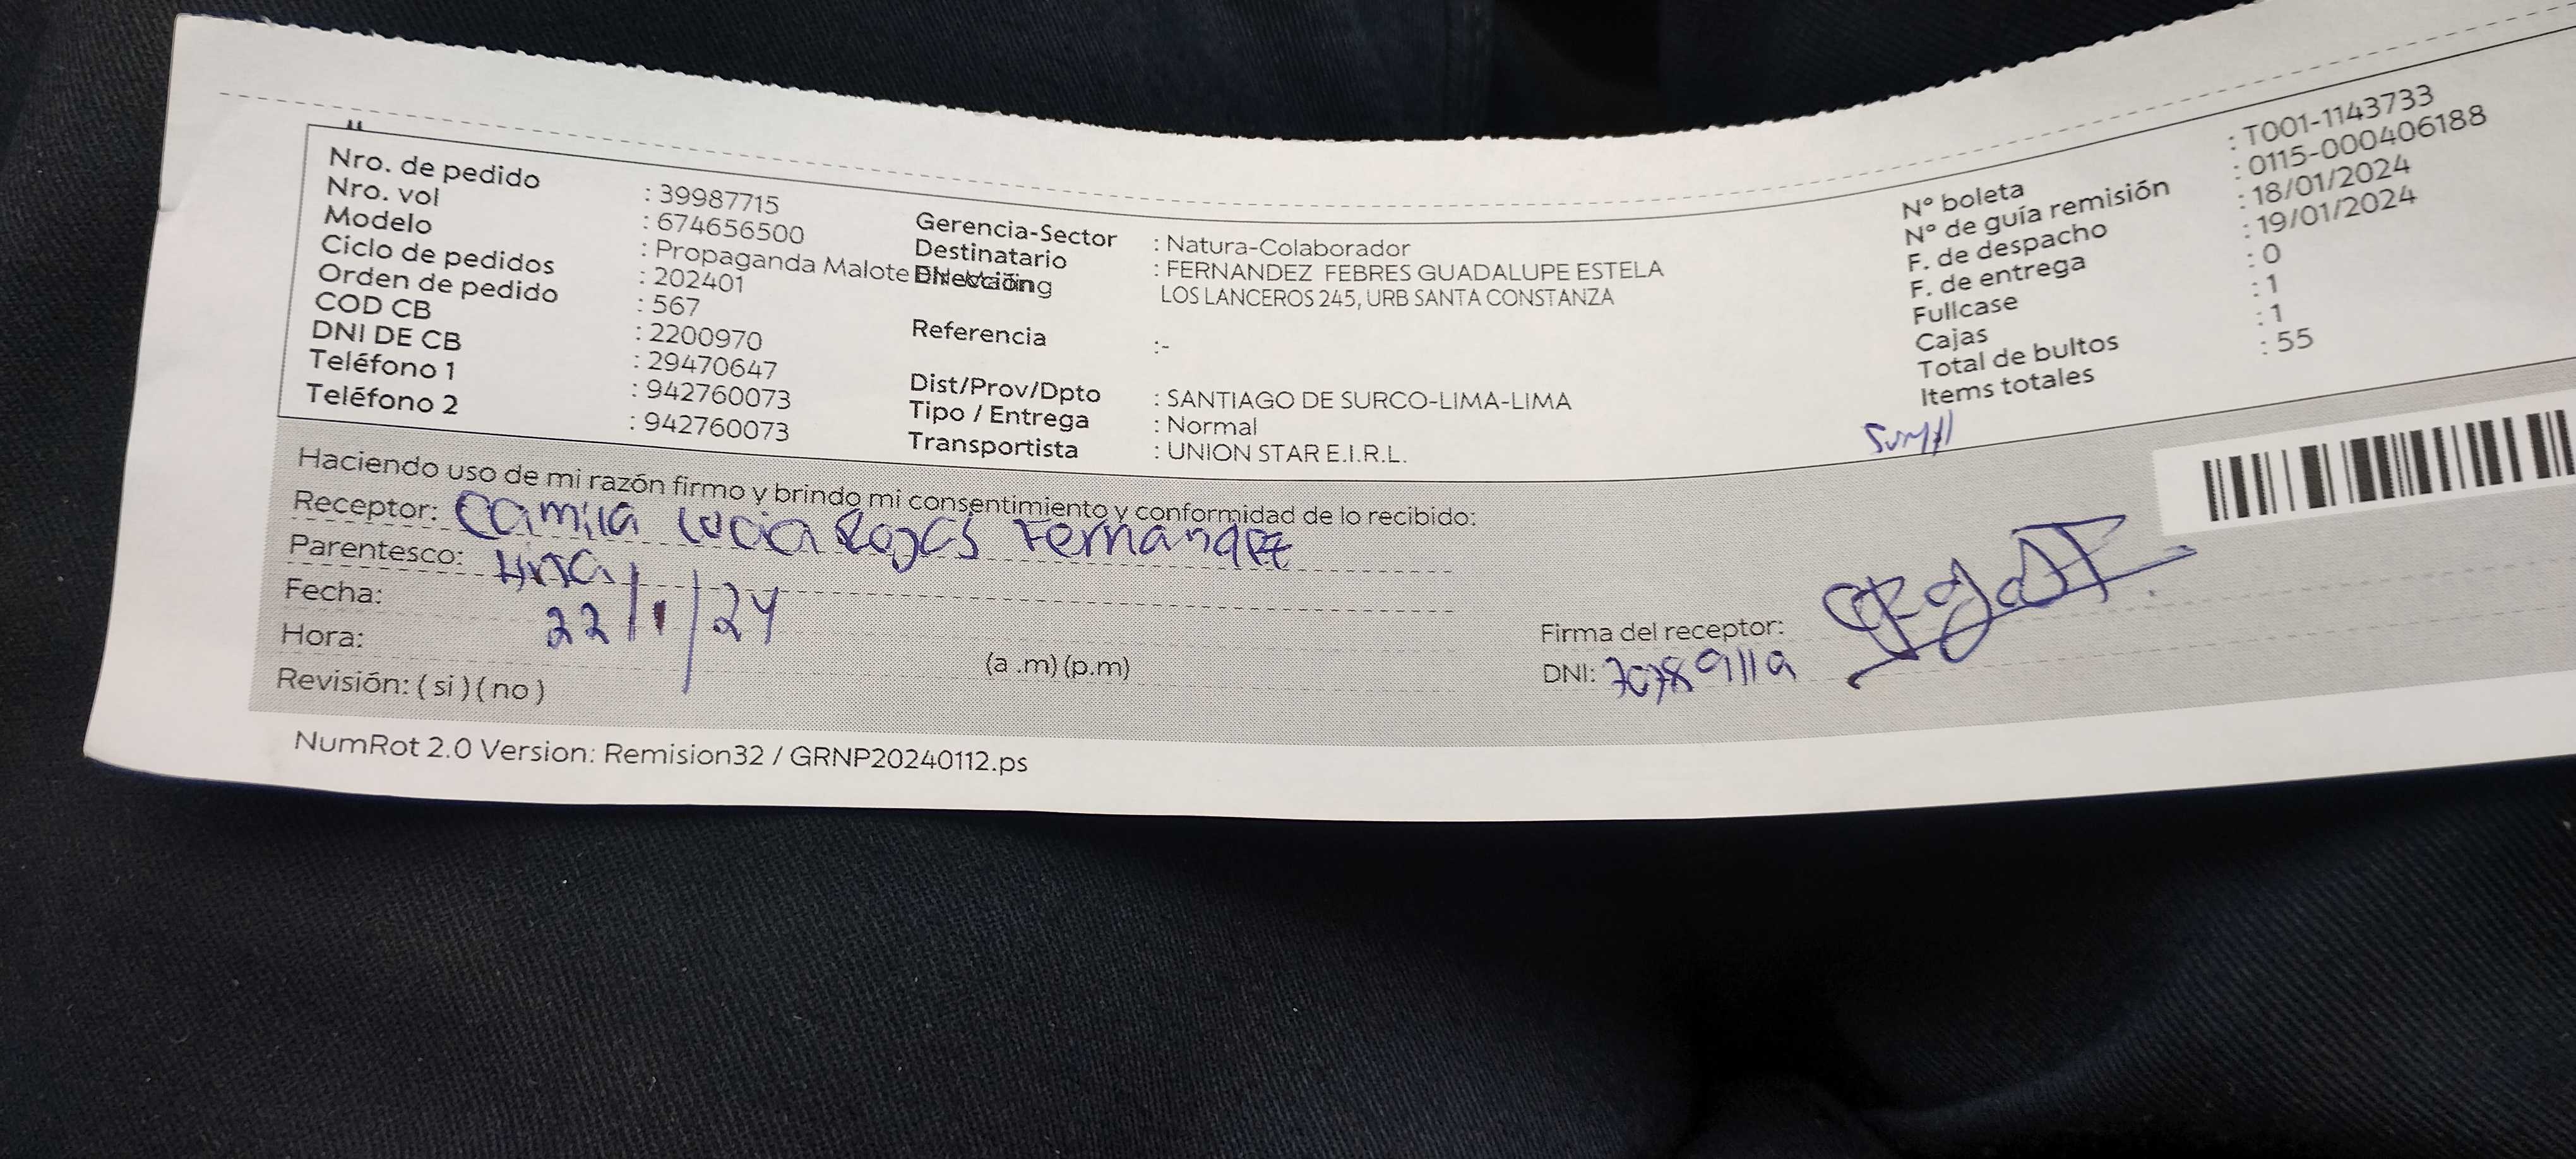 Nro. de pedido : 39987715
Nro. vol : 674656500
Modelo : Propaganda Malote
Ciclo de pedidos : 202401
Orden de pedido : 567
COD CB : 2200970
DNI DE CB : 29470647
Teléfono 1 : 942760073
Teléfono 2 : 942760073
Gerencia-Sector : Natura-Colaborador
Destinatario : FERNANDEZ FEBRES GUADALUPE ESTELA
Dirección LOS LANCEROS 245, URB SANTA CONSTANZA
Referencia :-
Dist/Prov/Dpto : SANTIAGO DE SURCO-LIMA-LIMA
Tipo / Entrega : Normal
Transportista : UNION STAR E.I.R.L.
N° boleta : T001-1143733
N° de guía remisión : 0115-000406188
F. de despacho : 18/01/2024
F. de entrega : 19/01/2024
Fullcase : 0
Cajas : 1
Total de bultos : 1
Items totales : 55
Haciendo uso de mi razón firmo y brindo mi consentimiento y conformidad de lo recibido:
Receptor: Camila Lucia Rojas Fernandez
Parentesco: Hija
Fecha: 22/1/24
Hora: (a .m) (p.m)
Revisión: ( si ) ( no )
Firma del receptor:
DNI: 70789119
NumRot 2.0 Version: Remision32 / GRNP20240112.ps